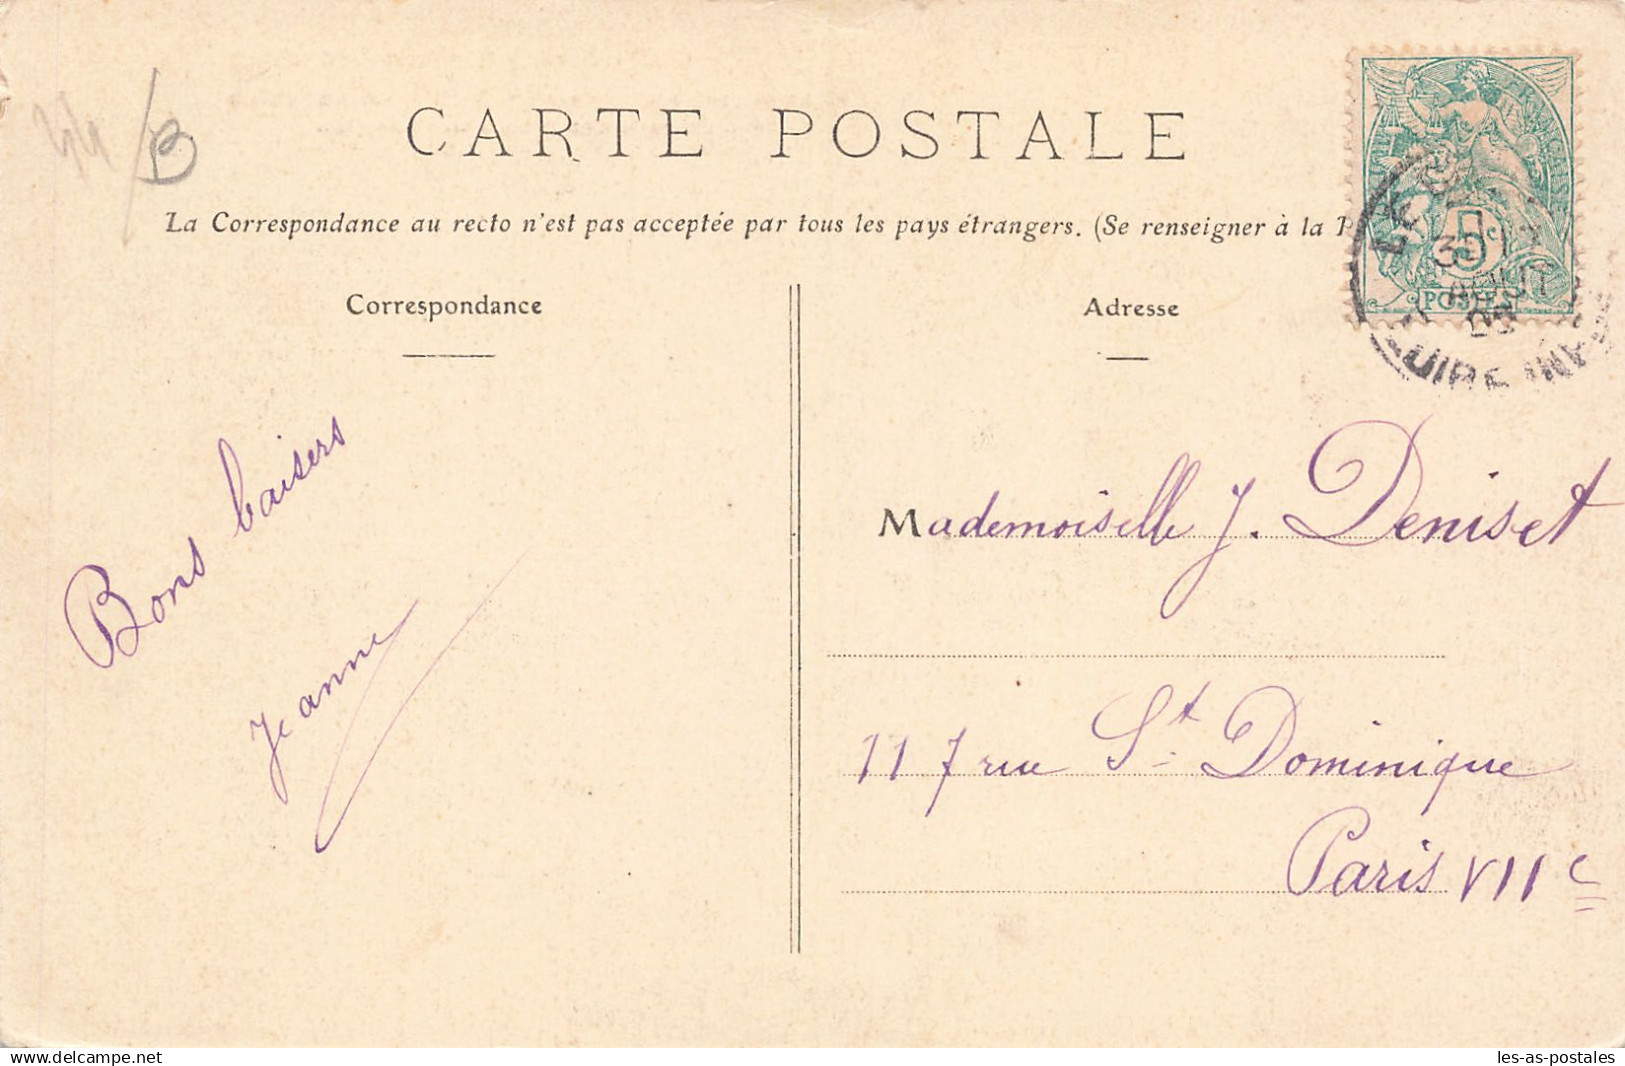 44 / B
CARTE POSTALE
La Correspondance au recto n'est pas acceptée par tous les pays étrangers. (Se renseigner à la P
5c
POSTES
30
AOUT
LOIRE INF
Correspondance
Adresse
Bons baisers
Jeanne
Mademoiselle J. Deniset
117 rue St Dominique
Paris VIIe
delcampe.net
les-as-postales